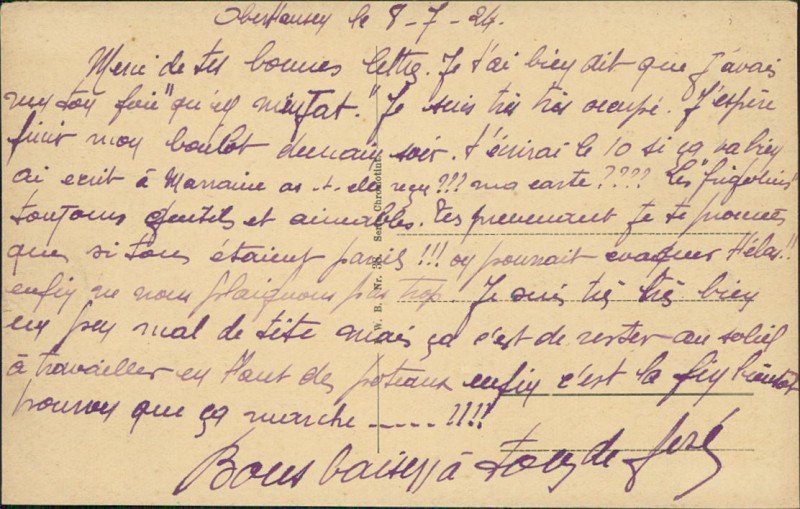 Oberhausen le 8-7-24.
Merci de tes bonnes lettres. Je t'ai bien dit que j'avais
"qu'en Je suis très très occupé. J'espère
finir mon boulot demain soir. t'écrirai le 10 si ça va bien
ai ecrit à Marraine as-t-elle reçu??? ma carte???? Les
toujours gentils et aimables. Tes prevenant je te promets
que si tous étaient pareils!!! on pourrait evaquer Hélas!!
enfin ne nous plaignons pas trop. Je suis très très bien
un peu mal de tête mais ça c'est de rester au soleil
à travailler en haut des poteaux enfin c'est la fin bientôt
pourvu que ça marche ......!!!!
Bons baisers à tous de José
W. B. Nr. 38. Serie Chromotint